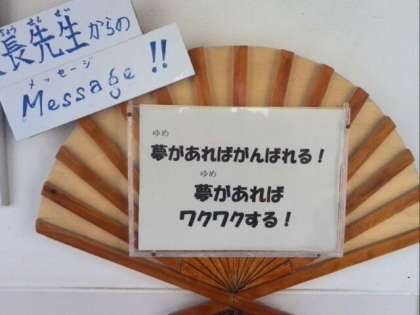 長先生からの
メッセージ
Message!!
ゆめ
夢があればがんばれる！
ゆめ
夢があれば
ワクワクする！